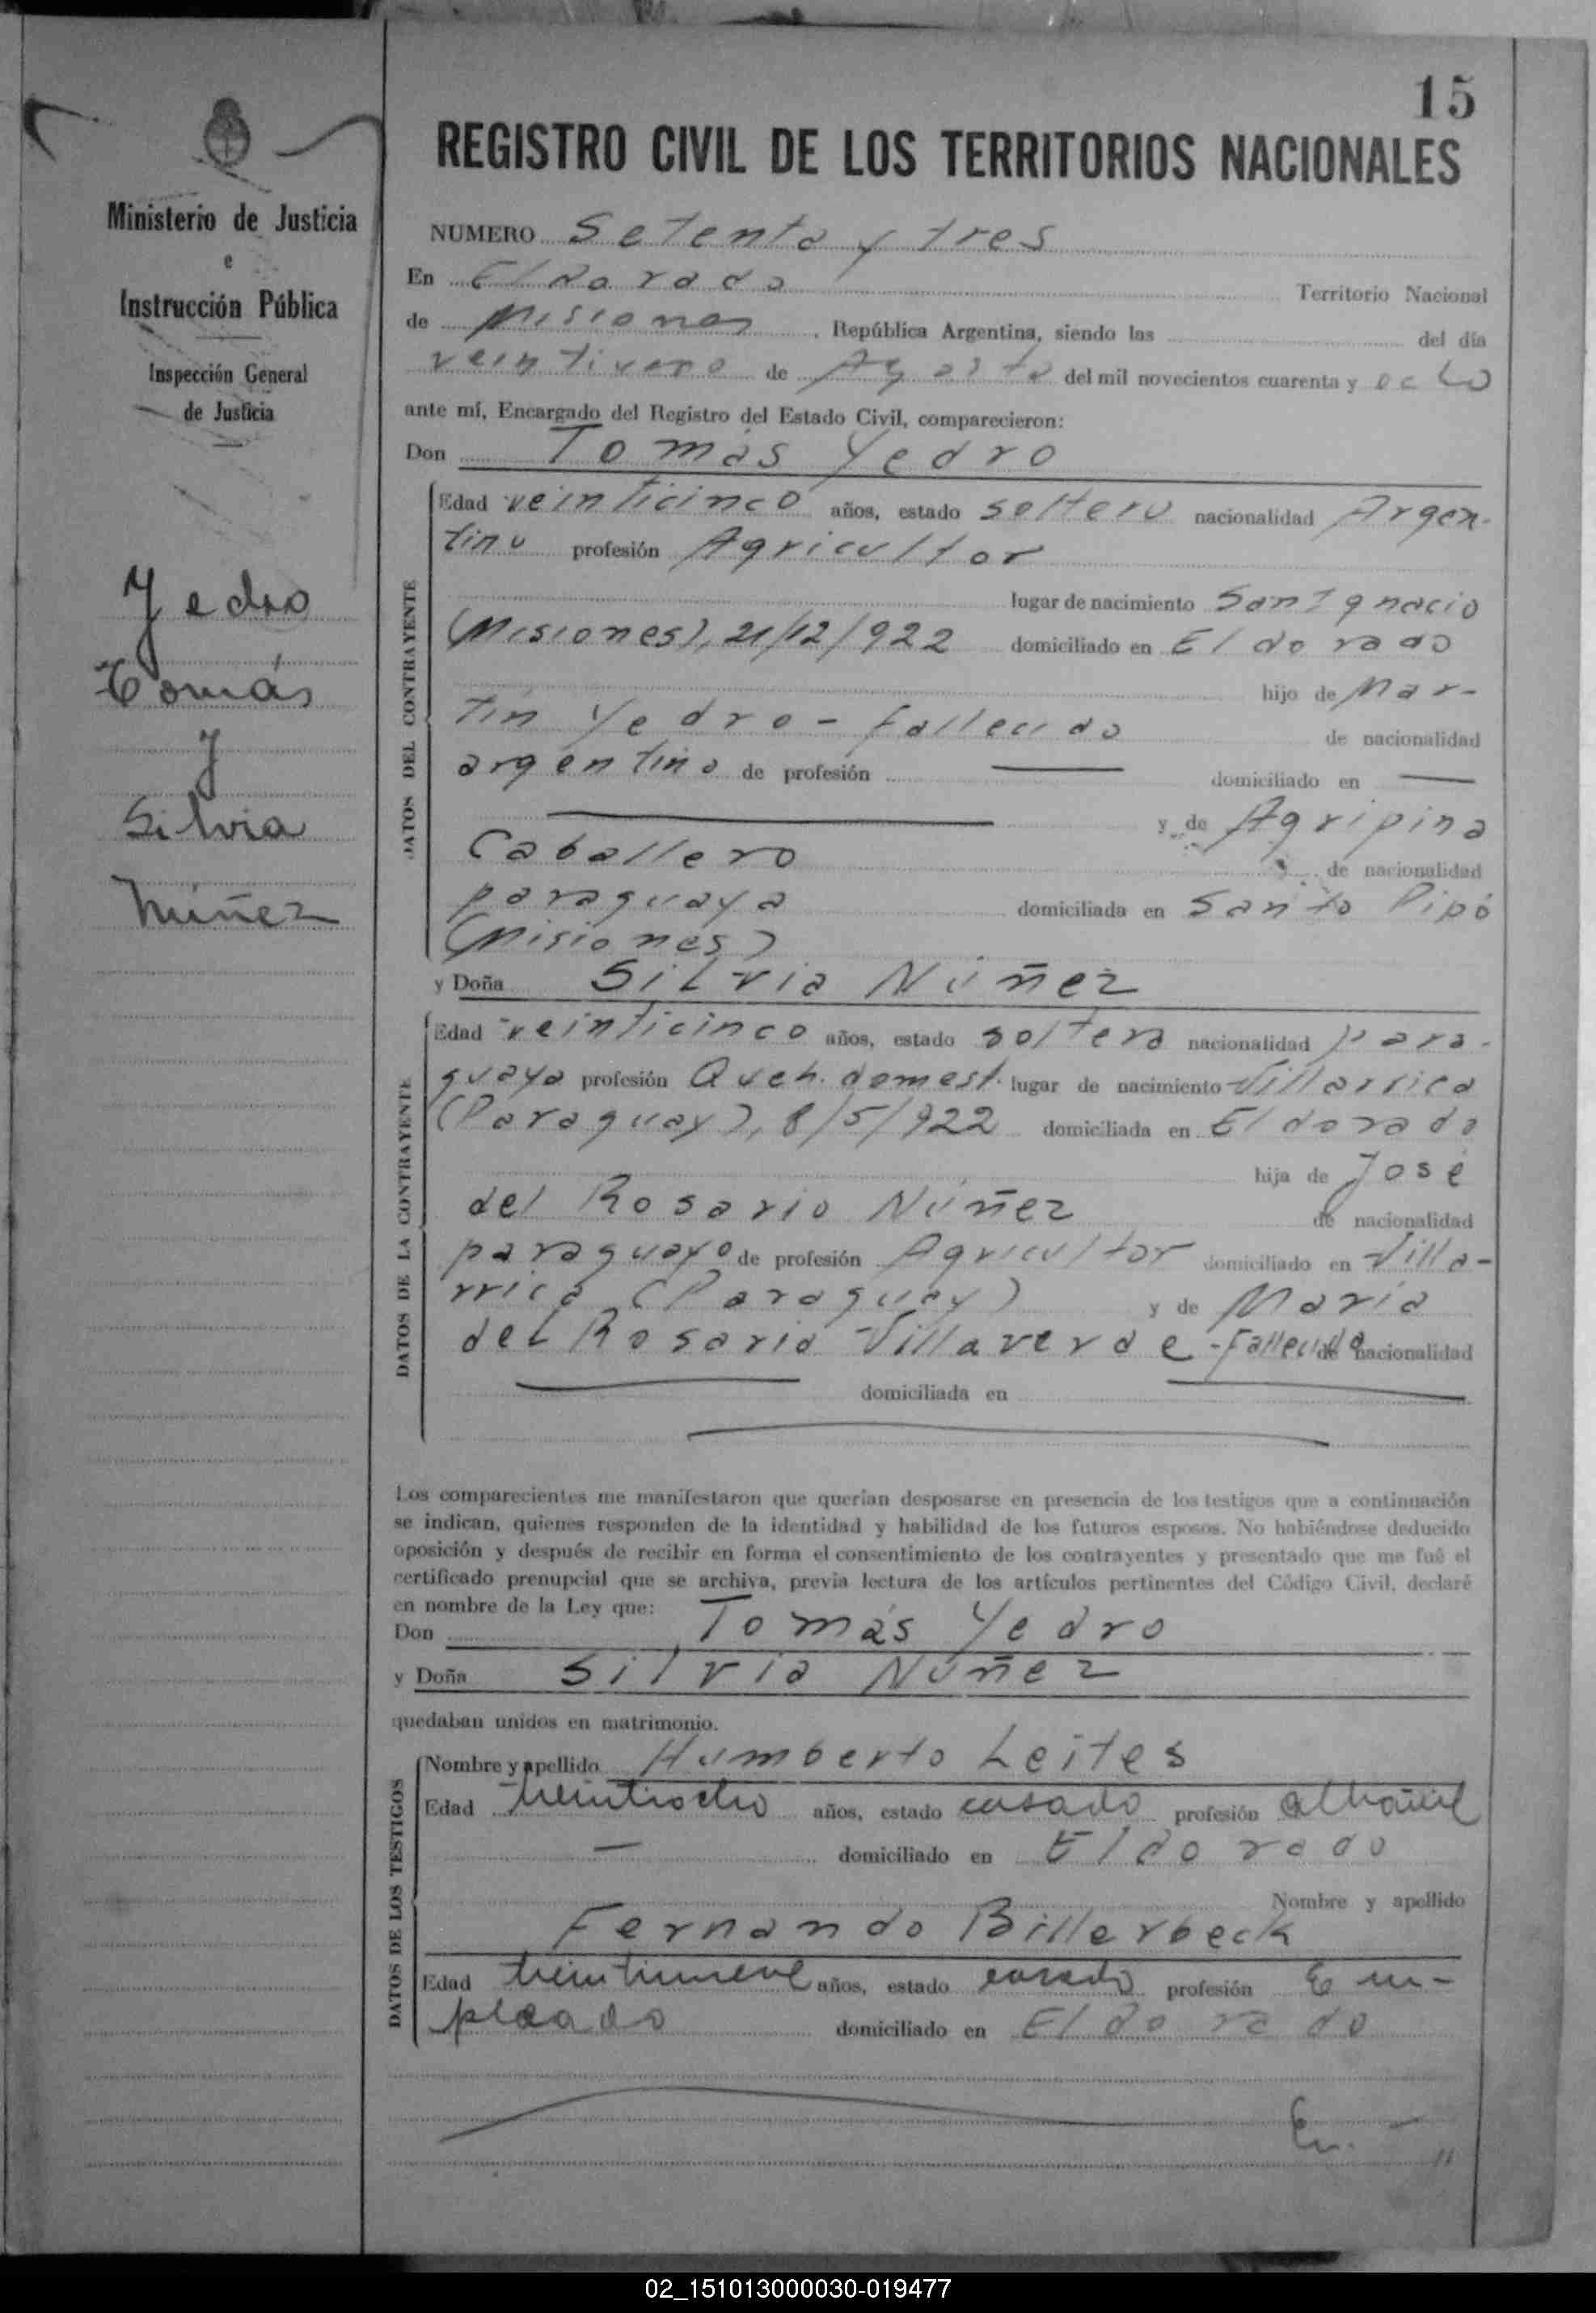 15
REGISTRO CIVIL DE LOS TERRITORIOS NACIONALES
Ministerio de Justicia
e
Instrucción Pública
Inspección General
de Justicia
Yedro
Tomás
y
Silvia
Núñez
NUMERO Setenta y tres
En Eldorado Territorio Nacional
de Misiones, República Argentina, siendo las del día
de Agosto del mil novecientos cuarenta y ocho
ante mí, Encargado del Registro del Estado Civil, comparecieron:
Don Tomás Yedro
DATOS DEL CONTRAYENTE
Edad veinticinco años, estado soltero nacionalidad Argen-
tino profesión Agricultor
lugar de nacimiento San Ignacio
(Misiones), 21/12/922 domiciliado en Eldorado
hijo de Mar-
tín Yedro - fallecido de nacionalidad
argentino de profesión — domiciliado en —
y de Agripina
Caballero de nacionalidad
paraguaya domiciliada en Santo Pipó
(Misiones)
y Doña Silvia Núñez
DATOS DE LA CONTRAYENTE
Edad veinticinco años, estado soltera nacionalidad para-
guaya profesión Queh. domest. lugar de nacimiento Villarrica
(Paraguay), 8/5/922 domiciliada en Eldorado
hija de José
del Rosario Núñez de nacionalidad
paraguayo de profesión Agricultor domiciliado en Villa-
rrica (Paraguay) y de María
del Rosario Villaverde - fallecida de nacionalidad
domiciliada en
Los comparecientes me manifestaron que querían desposarse en presencia de los testigos que a continuación
se indican, quienes responden de la identidad y habilidad de los futuros esposos. No habiéndose deducido
oposición y después de recibir en forma el consentimiento de los contrayentes y presentado que me fué el
certificado prenupcial que se archiva, previa lectura de los artículos pertinentes del Código Civil, declaré
en nombre de la Ley que:
Don Tomás Yedro
y Doña Silvia Núñez
quedaban unidos en matrimonio.
DATOS DE LOS TESTIGOS
Nombre y apellido Humberto Leites
Edad treintiocho años, estado casado profesión albañil
— domiciliado en Eldorado
Nombre y apellido
Fernando Billerbeck
Edad treintinueve años, estado casado profesión Em-
pleado domiciliado en Eldorado
En. - "
02_151013000030-019477